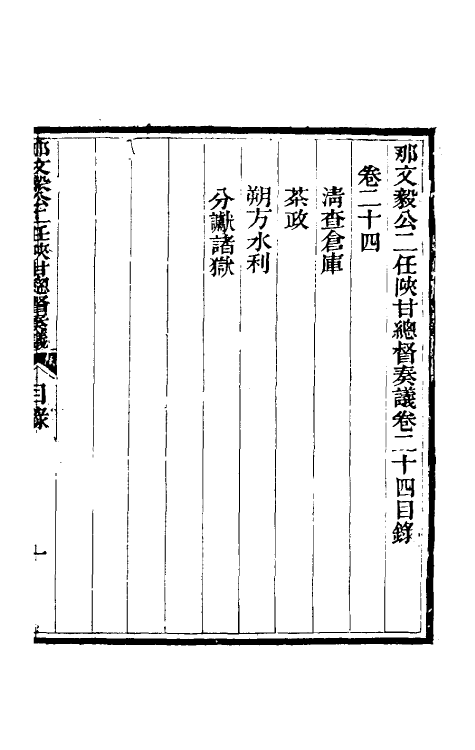 那文毅公二任陜甘總督奏議卷二十四目錄
卷二十四
清查倉庫
茶政
朔方水利
分讞諸獄
那文毅公二任陜甘總督奏議
目錄
一